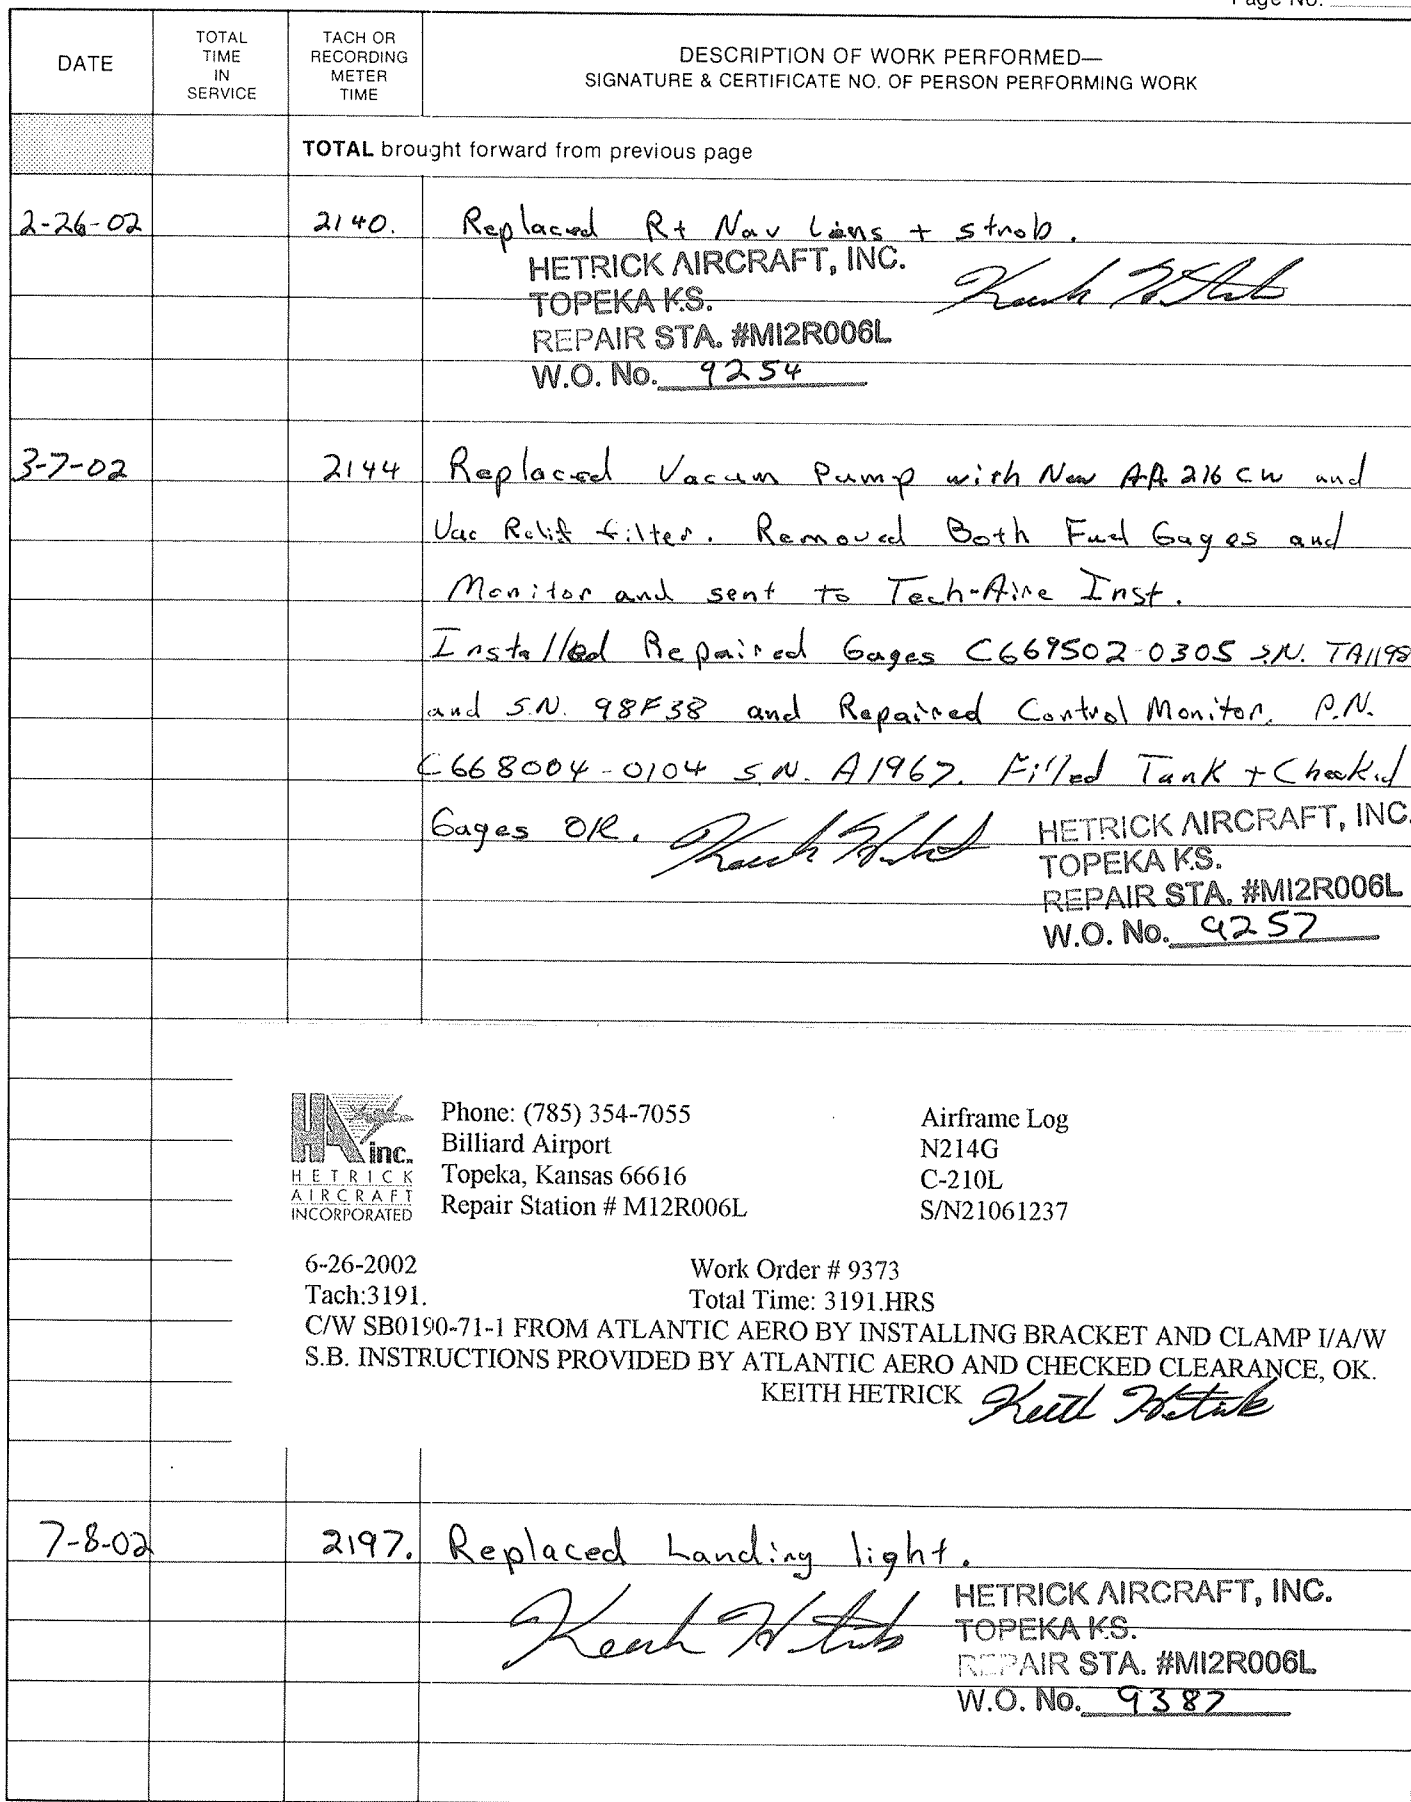 Page No.
DATE
TOTAL TIME IN SERVICE
TACH OR RECORDING METER TIME
DESCRIPTION OF WORK PERFORMED—
SIGNATURE & CERTIFICATE NO. OF PERSON PERFORMING WORK
TOTAL brought forward from previous page
2-26-02 2140. Replaced Rt Nav Lens + strob.
HETRICK AIRCRAFT, INC.
TOPEKA KS.
REPAIR STA. #MI2R006L
W.O. No. 9254
3-7-02 2144 Replaced Vacum Pump with New AA 216 CW and
Vac Relif filter. Removed Both Fuel Gages and
Monitor and sent to Tech-Aire Inst.
Installed Repaired Gages C669502-0305 S.N. TA1198
and S.N. 98F38 and Repaired Control Monitor. P.N.
C668004-0104 S.N. A1967. Filled Tank + Checked
Gages OK.
HETRICK AIRCRAFT, INC.
TOPEKA KS.
REPAIR STA. #MI2R006L
W.O. No. 9257
HA inc.
HETRICK
AIRCRAFT
INCORPORATED
Phone: (785) 354-7055
Billiard Airport
Topeka, Kansas 66616
Repair Station # M12R006L
Airframe Log
N214G
C-210L
S/N21061237
6-26-2002 Work Order # 9373
Tach:3191. Total Time: 3191.HRS
C/W SB0190-71-1 FROM ATLANTIC AERO BY INSTALLING BRACKET AND CLAMP I/A/W
S.B. INSTRUCTIONS PROVIDED BY ATLANTIC AERO AND CHECKED CLEARANCE, OK.
KEITH HETRICK Keith Hetrick
7-8-02 2197. Replaced Landing light.
HETRICK AIRCRAFT, INC.
TOPEKA KS.
REPAIR STA. #MI2R006L
W.O. No. 9387